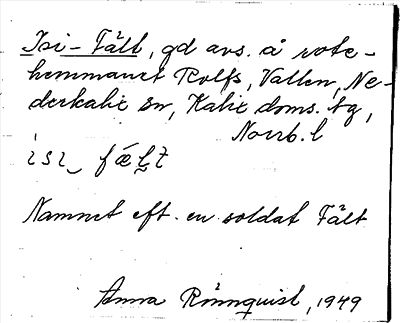 Isi-Fält, gd avs. å rote-
hemmanet Rolfs, Vallen, Ne-
derkalix sn, Kalix doms. tg,
Norrb. l
isi fælt
Namnet eft. en soldat Fält
Anna Rönnquist, 1949